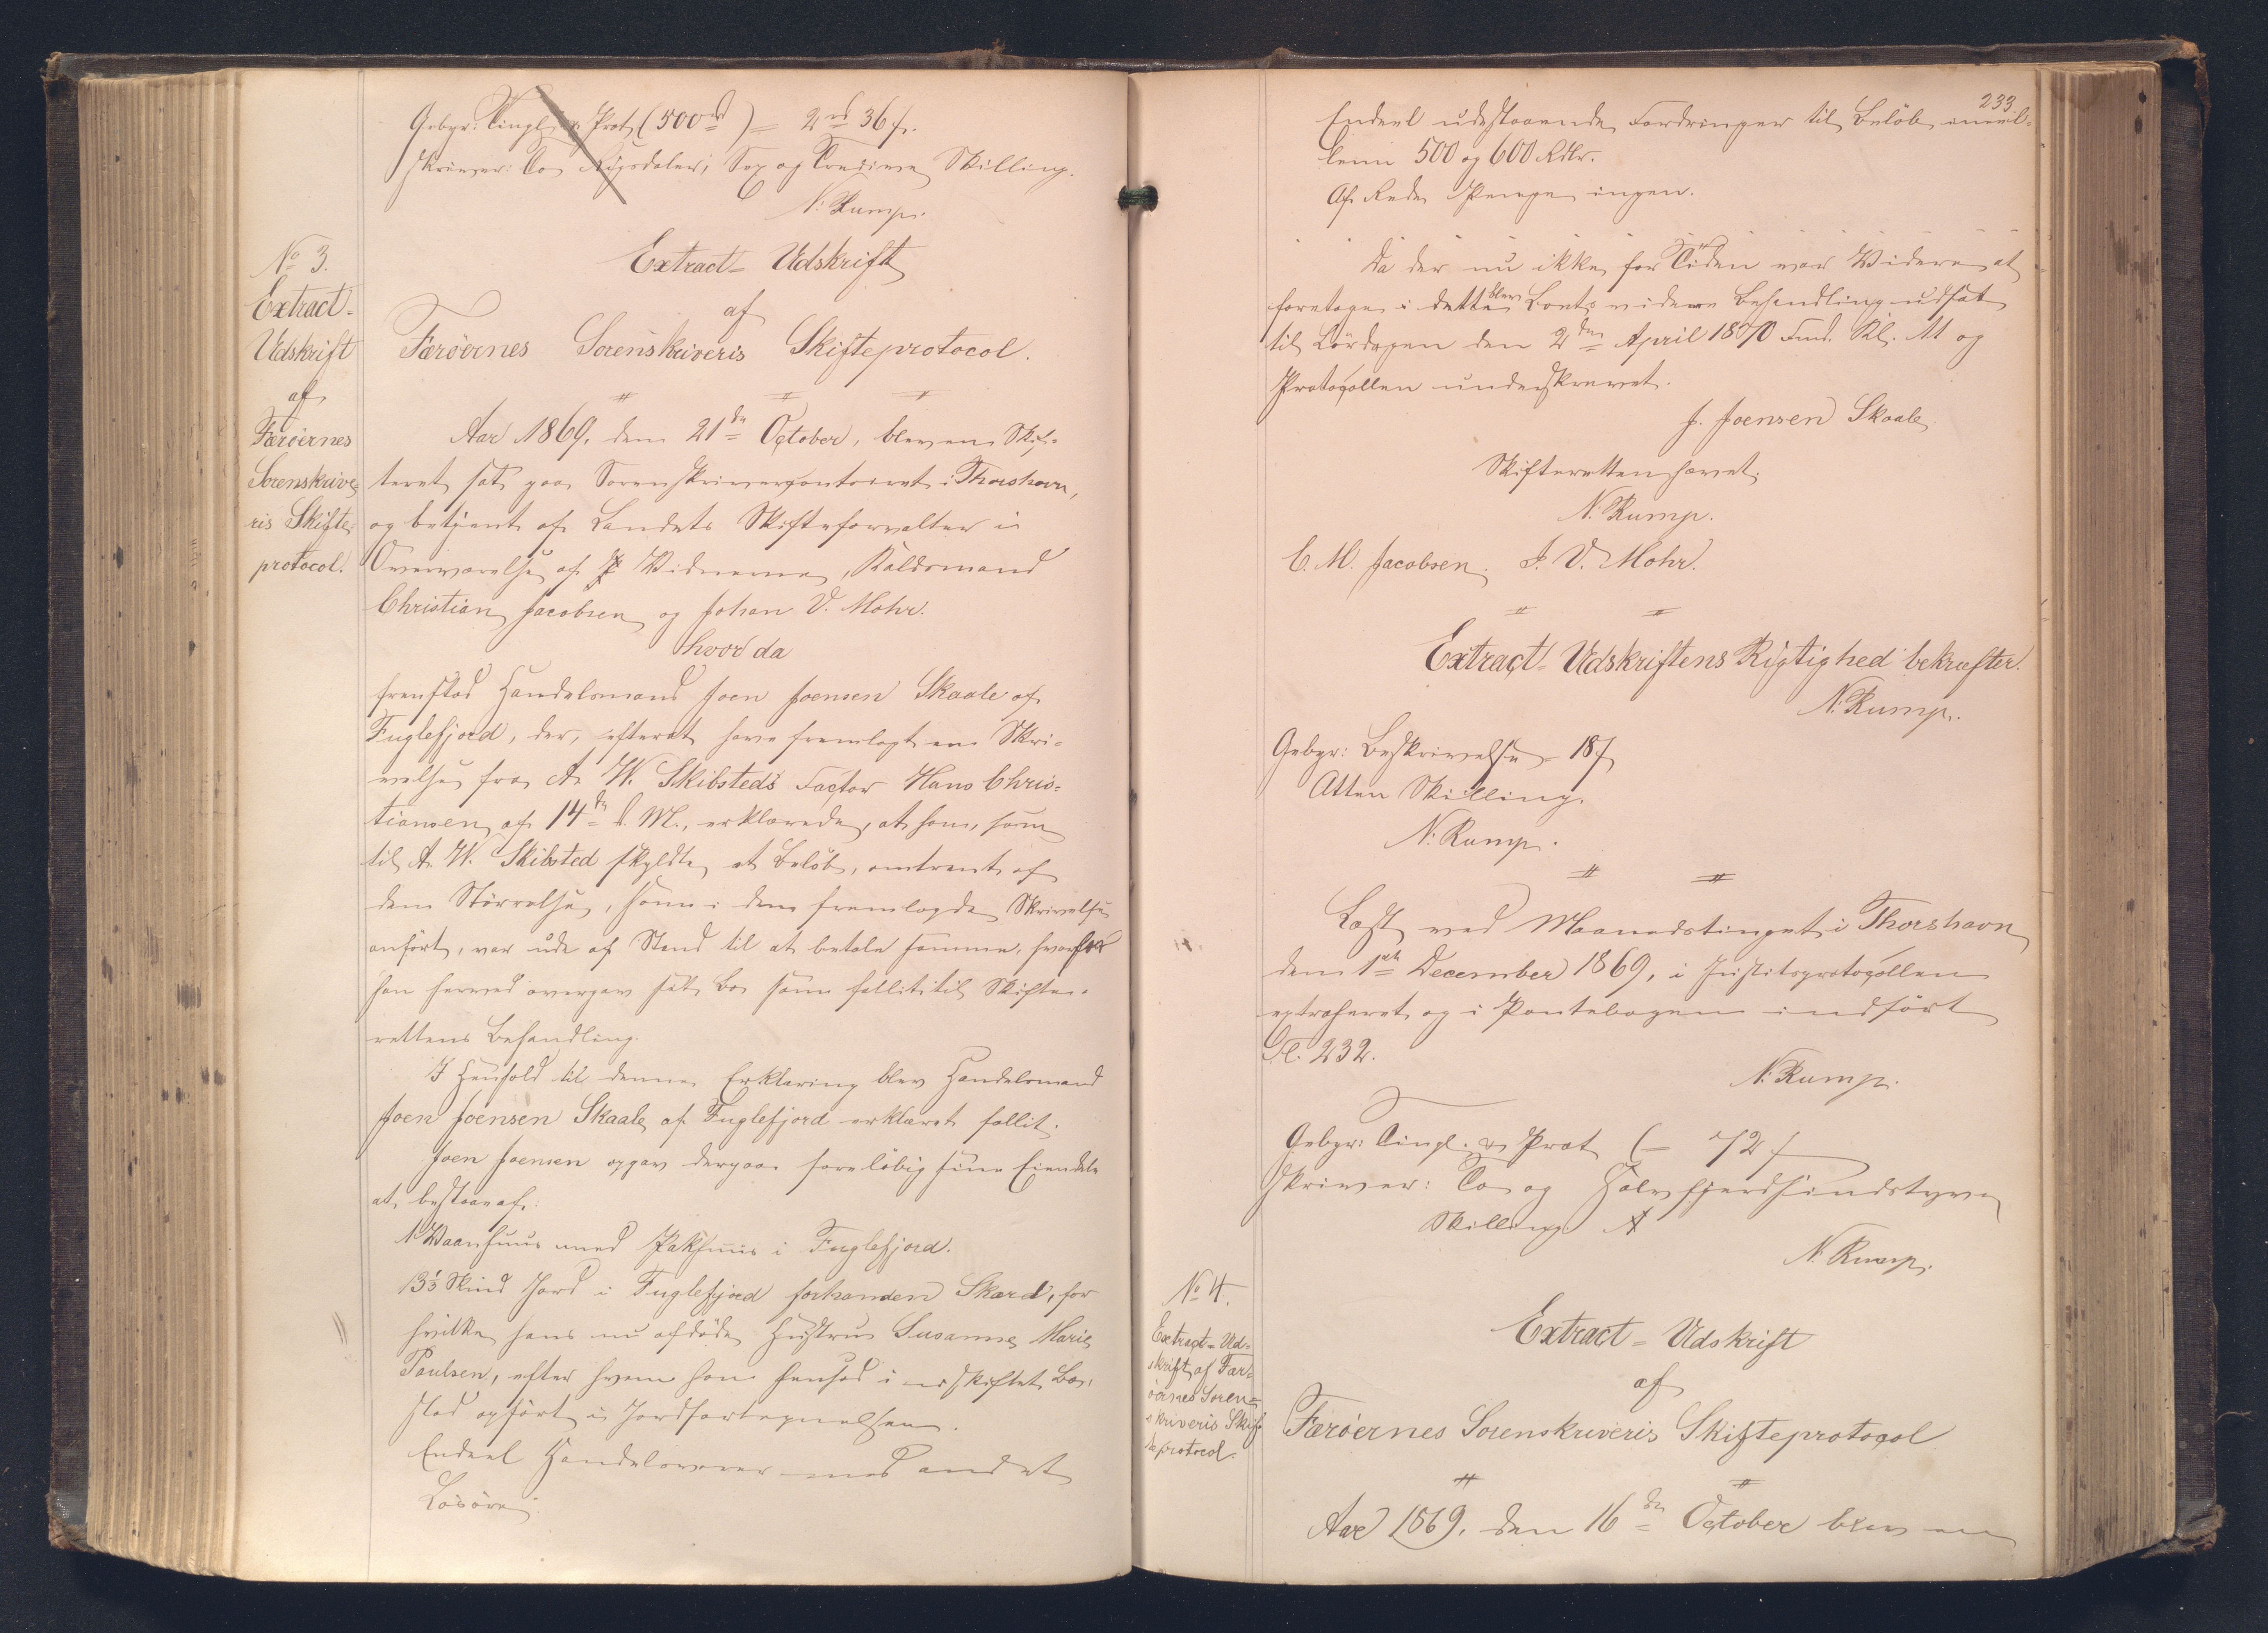 Gebyr: Tingl. og Prot. (500 rd) = 2 rd 36 s.
skriver: To Rigsdaler, Sex og Tredive Skilling.
N. Rump.
No 3.
Extract-
Udskrift
af
Færöernes
Sorenskrive-
ris Skifte-
protocol.
Extract-Udskrift
af
Færöernes Sorenskriveris Skifteprotocol.
Aar 1869, den 21de October, blev en Skif-
teret sat paa Sorenskrivercontoiret i Thorshavn,
og betjent af Landets Skifteforvalter i
Overværelse af Vidnerne, Kaldsmand
Christian Jacobsen og Johan D. Mohr.
hvor da
fremstod Handelsmand Joen Joensen Skaale af
Fuglefjord, der, efterat have fremlagt en Skri-
velse fra A. W. Skibsteds Factor Hans Chris-
tiansen af 14de d. M., erklærede, at han, som
til A. W. Skibsted skyldte et Beløb, omtrent af
den Størrelse, som i den fremlagde Skrivelse
anført, var ude af Stand til at betale samme, hvorfor
han herved overgav sit Bo som fallit til Skifte-
rettens Behandling.
I Henhold til denne Erklæring blev Handelsmand
Joen Joensen Skaale af Fuglefjord erklæret fallit.
Joen Joensen opgav derpaa foreløbig sine Eiendele
at bestaae af:
1 Vaanhuus med Pakhuus i Fuglefjord.
13 1/3 Skind Jord i Fuglefjord forhanden Skard, for
hvilke hans nu afdøde Hustru Susanne Marie
Poulsen, efter hvem han hensad i uskiftet Bo,
stod opført i Jordfortegnelsen.
Endeel Handelsvarer med andet
Løsøre.
233
Endeel udestaaende Fordringer til Beløb imel-
lem 500 og 600 Rdlr.
Af Rede Penge ingen.
Da der nu ikke for Tiden var Videre at
foretage i dette blev Boets videre Behandling udsat
til Lördagen den 2den April 1870 Fmd. Kl. 11 og
Protocollen underskrevet.
J. Joensen Skaale
Skifteretten hævet.
N. Rump.
C. M. Jacobsen. J. D. Mohr.
Extract-Udskriftens Rigtighed bekræfter.
N. Rump.
Gebyr: Beskrivelse 18 s
Atten Skilling.
N. Rump.
Læst ved Maanedstinget i Thorshavn
den 1ste December 1869, i Justitsprotocollen
extraheret og i Pantebogen indført
Fol. 232.
N. Rump.
Gebyr: Tingl. & Prot. (= 72 s
skriver: To og Halvfjerdsindstyve
Skilling
N. Rump.
No 4.
Extract-Ud-
skrift af Fær-
öernes Soren-
skriveris Skif-
teprotocol.
Extract-Udskrift
af
Færöernes Sorenskriveris Skifteprotocol
Aar 1869, den 16de October blev en